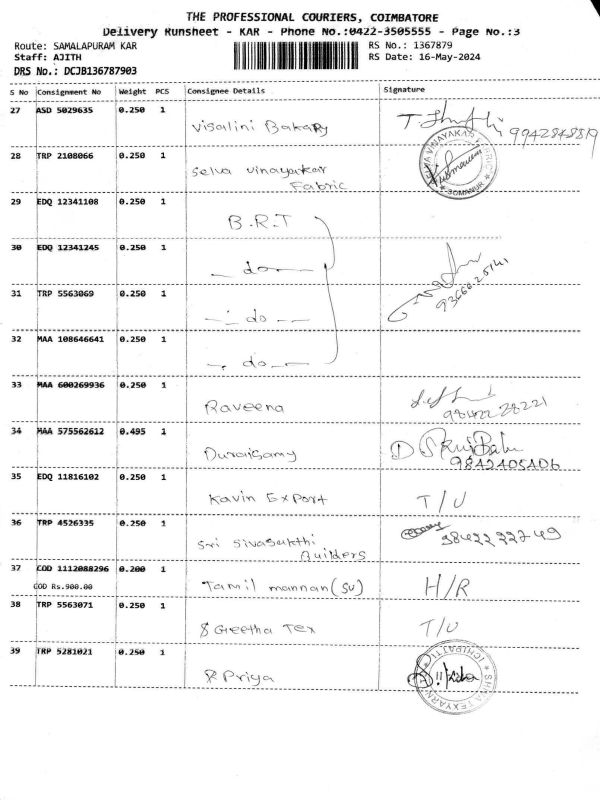 THE PROFESSIONAL COURIERS, COIMBATORE
Delivery Runsheet - KAR - Phone No.:0422-3505555 - Page No.:3
Route: SAMALAPURAM KAR RS No.: 1367879
Staff: AJITH RS Date: 16-May-2024
DRS No.: DCJB136787903
S No Consignment No Weight PCS Consignee Details Signature
27 ASD 5029635 0.250 1
Visalini Bakary 9942848819
28 TRP 2108066 0.250 1
Selva vinayakar
Fabric
SOMANUR
29 EDQ 12341108 0.250 1
B.R.T
30 EDQ 12341245 0.250 1
— do —
31 TRP 5563069 0.250 1
— do —
32 MAA 108646641 0.250 1
— do —
33 MAA 600269936 0.250 1
Raveena 98422 28221
34 MAA 575562612 0.495 1
Duraisamy 9842405106
35 EDQ 11816102 0.250 1
Kavin Export T/U
36 TRP 4526335 0.250 1
Sri Sivasakthi 9842222749
Builders
37 COD 1112088296 0.200 1
COD Rs.900.00 Tamil mannan (SU) H/R
38 TRP 5563071 0.250 1
S Geetha Tex T/U
39 TRP 5281021 0.250 1
Priya